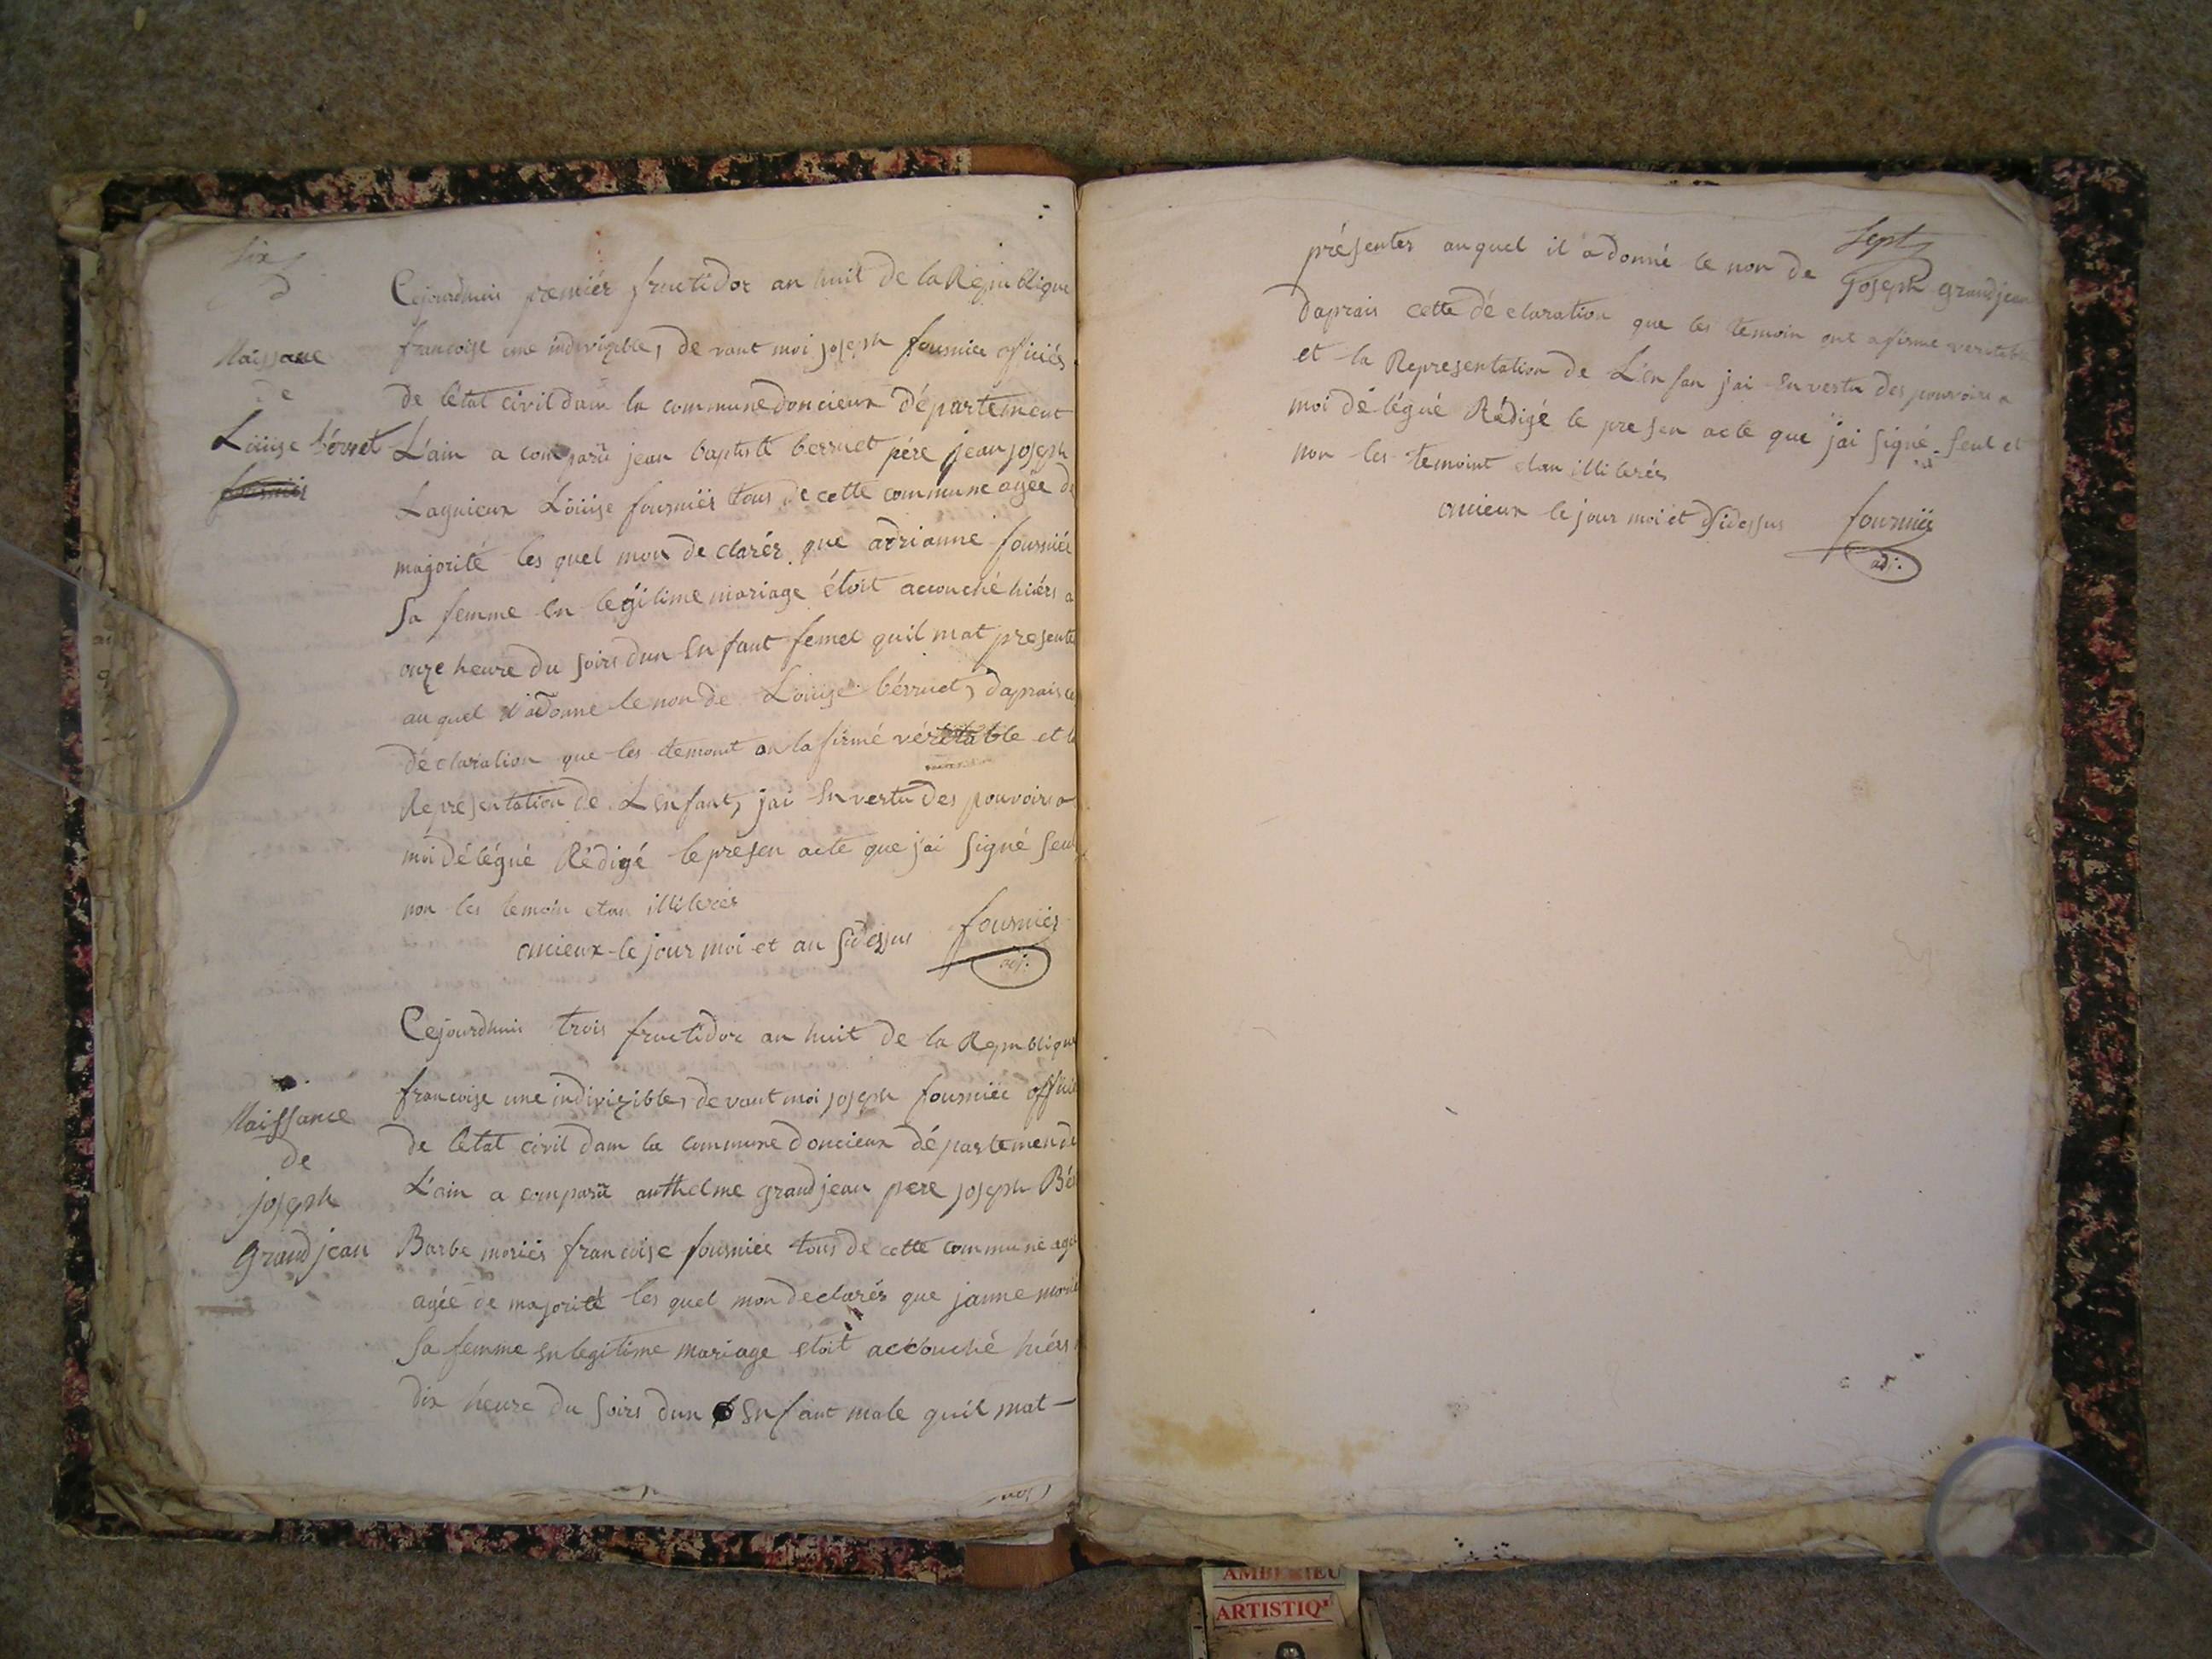 six
Naissance
de
Loüise bérruet
fourniér
Cejourdhuis premiér fructidor an huit de la Republique
francoise une indivizible, devant moi joseph fourniér officiér
de létat civil dam la commune doncieux département
L'ain a comparü jean baptiste berruet pére jean joseph
Lagnieux Loüise fourniér tous de cette commune agée de
majorité les quel mon declarér que adrianne fourniér
sa femme en legitime mariage étoit accouché hiérs a
onze heure du soirs dun enfaut femel quil mat presenté
au quel il a donné le non de Loüise bérruet, daprais ce
déclaration que les temoint on lafirmé véritable et la
Représentation de Lenfant, jai en vertu des pouvoirs a
moi délégué Rédigé le présen acte que j'ai signé seul
non les temoin etan illiterér
oncieux le jour moi et an sidessus fourniér
adj.
Naissance
de
joseph
grandjean
Cejourdhuis trois fructidor an huit de la Republique
francoise une indivizible, devant moi joseph fourniér officié
de létat civil dam la commune doncieux département de
L'ain a comparü anthelme grandjean pere joseph Bé
Barbe moriér francoise fourniér tous de cette commune agé
agée de majorité les quel mon declarér que janne moriér
sa femme en legitime mariage étoit accouché hiérs
dix heure du soirs dun enfaut male quil mat
sept
présenter auquel il a donné le non de joseph grandjean
daprais cette déclaration que les temoin ont afirmé veritable
et la Representation de Lenfan jai en vertu des pouvoirs a
moi délégué Rédigé le presen acte que j'ai signé seul et
non les temoint etan illiterér
oncieux le jour moi et sidessus fourniér
adj.
AMBERIEU
ARTISTIQ